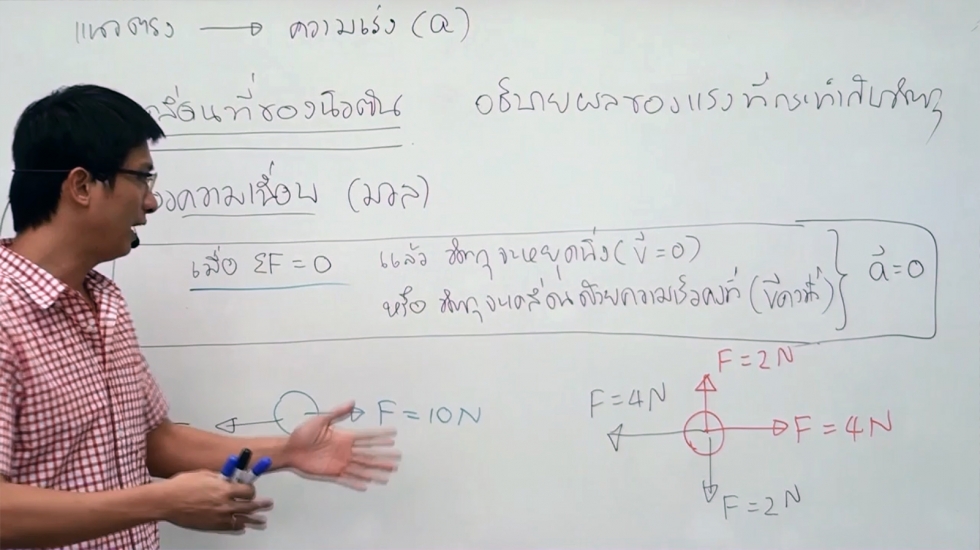 แนวตรง → ความเร่ง (a)
ลื่อนที่ของนิวตัน อธิบายผลของแรงที่กระทำกับวัตถุ
ความเฉื่อย (มวล)
เมื่อ ΣF = 0 แล้ว วัตถุจะหยุดนิ่ง (v̄ = 0)
หรือ วัตถุจะเคลื่อนด้วยความเร็วคงที่ (v̄ คงที่)
a⃗ = 0
F = 2N
F = 4N
F = 10N
F = 4N
F = 2N